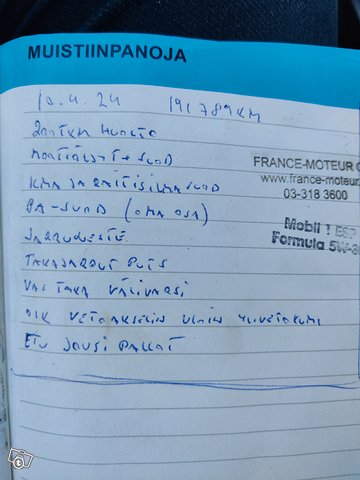 MUISTIINPANOJA
10.4.24 191789KM
200TKM HUOLTO
MOOTTORIÖLJYT + SUOD
ILMA JA RAITISILMASUOD
FRANCE-MOTEUR
www.france-moteur.
03-318 3600
PA-SUOD (OMA OSA)
Mobil 1 ESP
Formula 5W-30
JARRUNESTE
TAKAJARRUT PUTS
VAS TAKA VÄLIVARSI
OIK VETOAKSELIN ULOIN YLIVETOKUMI
ETU JOUSI PALLOT